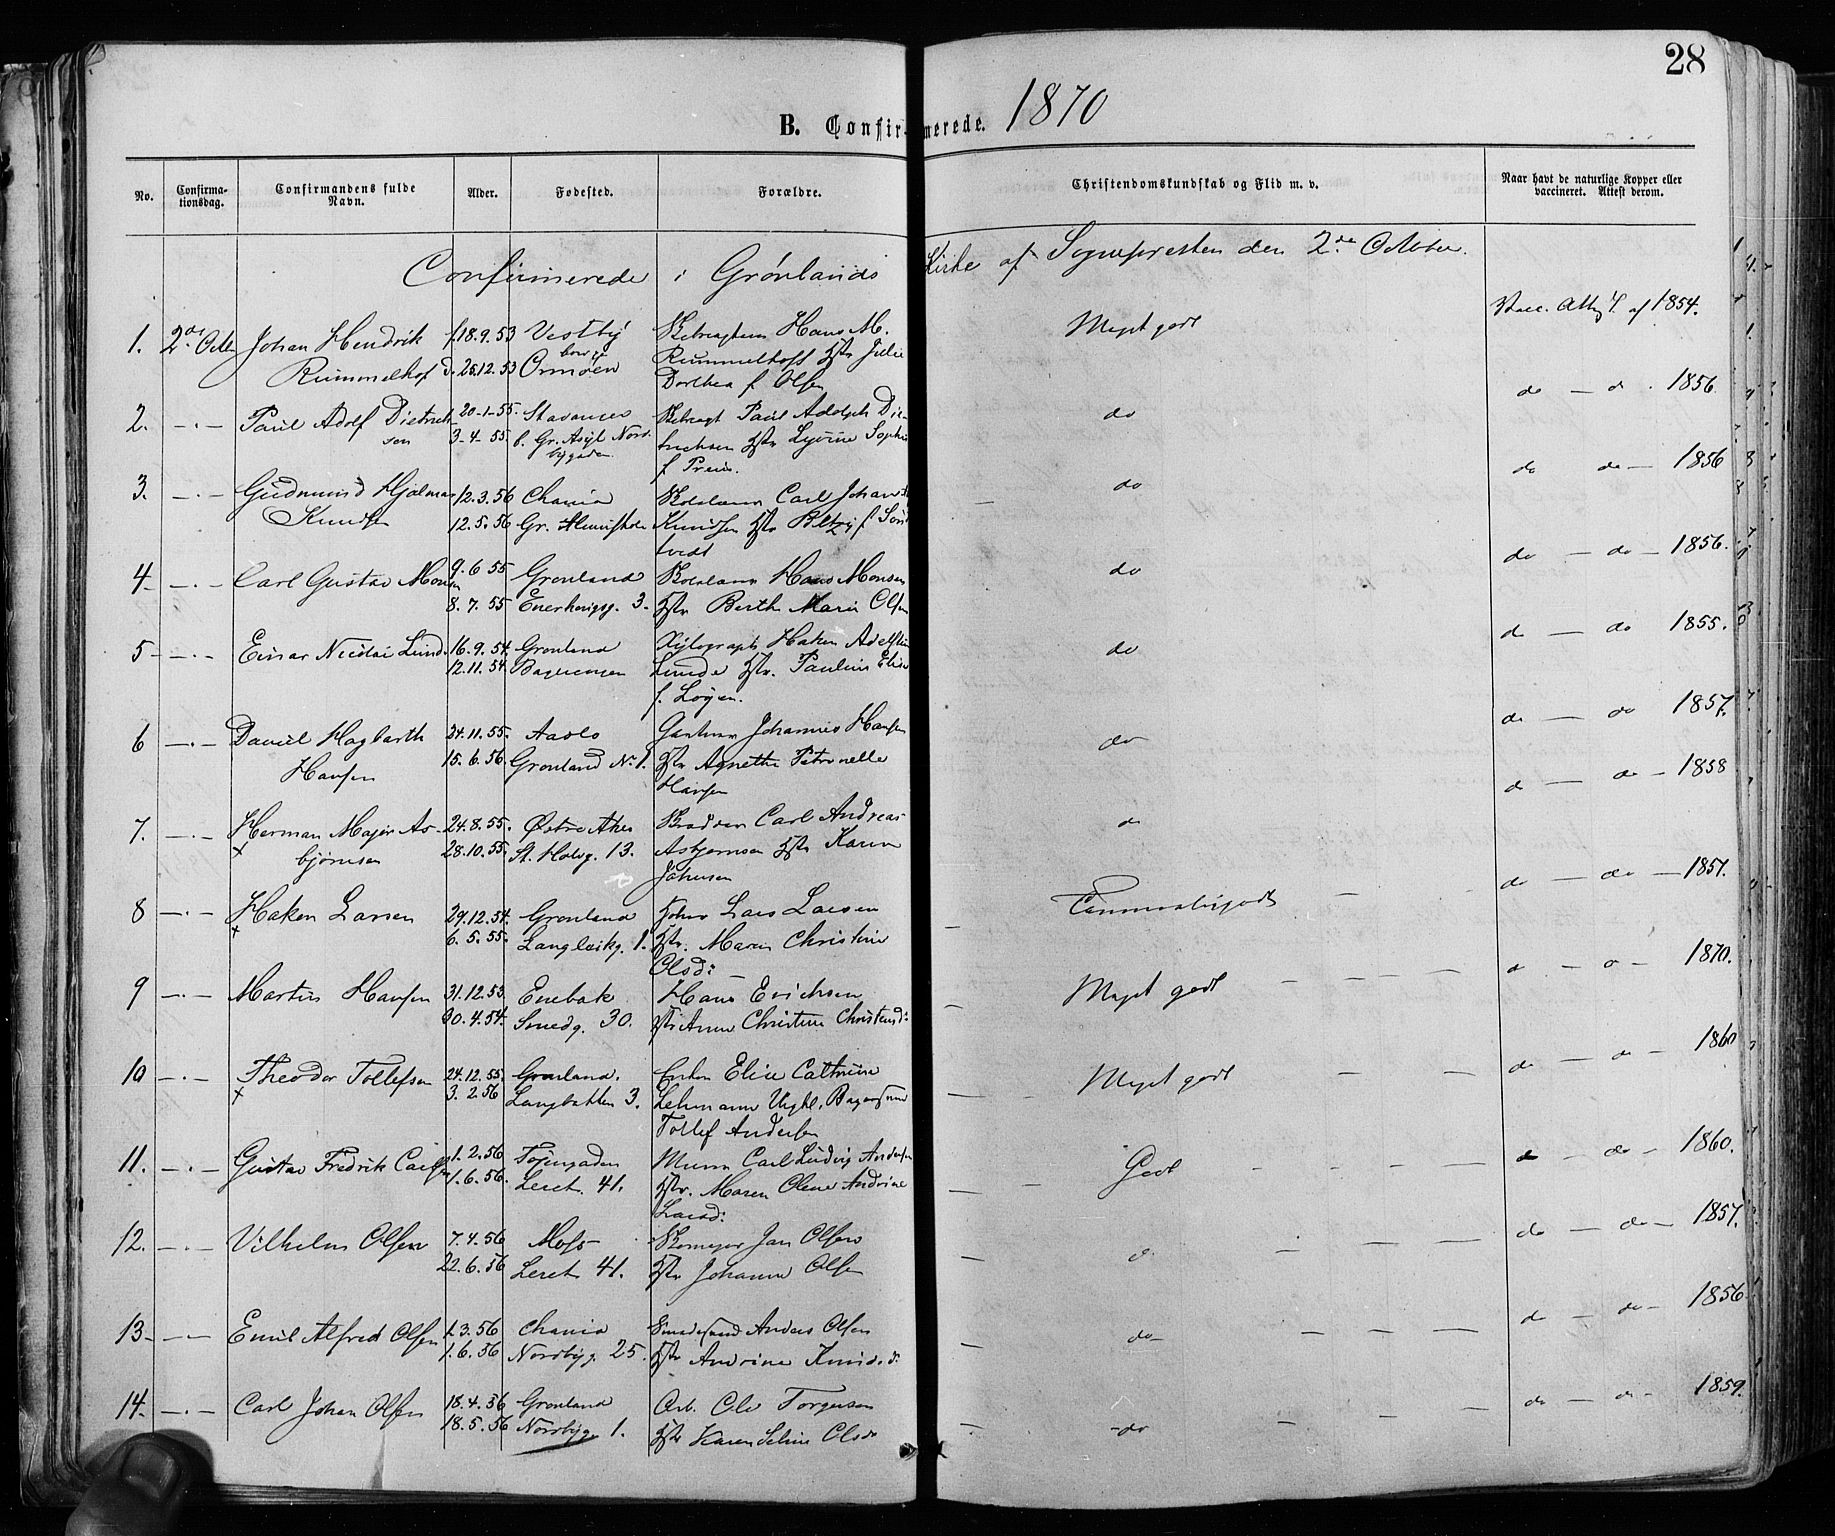 28
B. Confirmerede. 1870
No. Confirmationsdag. Confirmandens fulde Navn. Alder. Fødested. Forældre. Christendomskundskab og Flid m. v. Naar havt de naturlige Kopper eller vaccineret. Attest derom.
Confirmerede i Grønlands Kirke af Sognepresten den 2de October.
1. 2de Octbr Johan Hendrik f. 18.9.53 Vestby Hans M. Meget godt Vacc. Att. af 1854.
Rummelhof d. 25.12.53 Ormøen Rummelhoff Hstr Julie
Dorthea f. Olsen
2. —.— Paul Adolf Dietrich 20-1-55. Stavanger Paul Adolph Die- do do — do 1856
sen 3-4-55. f. Gr. Asyl Nord trichsen Hstr Sophie
bygaden f
3. —.— Gudmund Hjalmar 12.3.56 Chania Carl Johan do do do — 1856
Knudsen 12.5.56 Gr. Knudsen Hstr f
tvedt
4 —.— Carl Gustav Monsen 9.6 55 Grønland Hans Monsen do do — do — 1856.
8.7.55 Enerhaugsg. 3. Hstr Berth Marie Olsen
5 —.— Einar Nicolai Lund 16.9.54 Grønland Xylograph Haken do do — do 1855.
12.11.54 Lunde Hstr. Pauline Elise
f.
6 —.— Daniel Hagbarth 24.11.55. Aaslo Johannes Hansen do do — do 1857.
Hansen 15.6.56. Grønland No 1. Hstr Agnethe Petronelle
Hansen
7. —.— Herman Major As- 24.8.55. Østre Aker Carl Andreas do do — do — 1858
× bjørnsen 28.10.55. St. Halvg. 13. Asbjørnsen Hstr Karen
Johnsen
8 —.— Haken Larsen 29.12.54. Grønland Lars Larsen Temmelig godt — — do — do — 1857.
× 6.5.55. Langleikg. 1. Hstr. Maren Christine
Olsd:
9 —.— Martin Hansen 31.12.53 Enebak Hans Erichsen Meget godt — — — do — do — 1870.
30.4.54. Smedg. 30. Hstr Anne Christine Christensd:
10 —.— Theodor Tollefsen 24.12.55 Grønland. Enken Elise Cathrine Meget godt — — do — do — 1860
× 3.2.56 3. Lehmann Ungkl.
Tollef Andersen
11. —.— Gustav Fredrik Carlsen 1.2.56 Tøiengaden Murer Carl Ludvig Andersen Godt — — — do — do — 1860.
1.6.56. Leret 41. Hstr. Maren Olene Andrine
Larsd:
12. —.— Vilhelm Olsen 7.4.56 Moss Jan Olsen do — — — do — do — 1857.
22.6.56 Leret 41. Hstr Johanne Olsen
13. — — Emil Alfred Olsen 1.3.56 Chania Smedesvend Anders Olsen do — — — do — do — 1856
1.6.56 Nordbyg. 25. Hstr Andrine Knudsd:
14. —.— Carl Johan Olsen 18.4.56 Grønland Arb. Ole Torgersen do — — — do — do — 1859.
18.5.56 Nordbyg. 1. Hstr Karen Seline Olsd